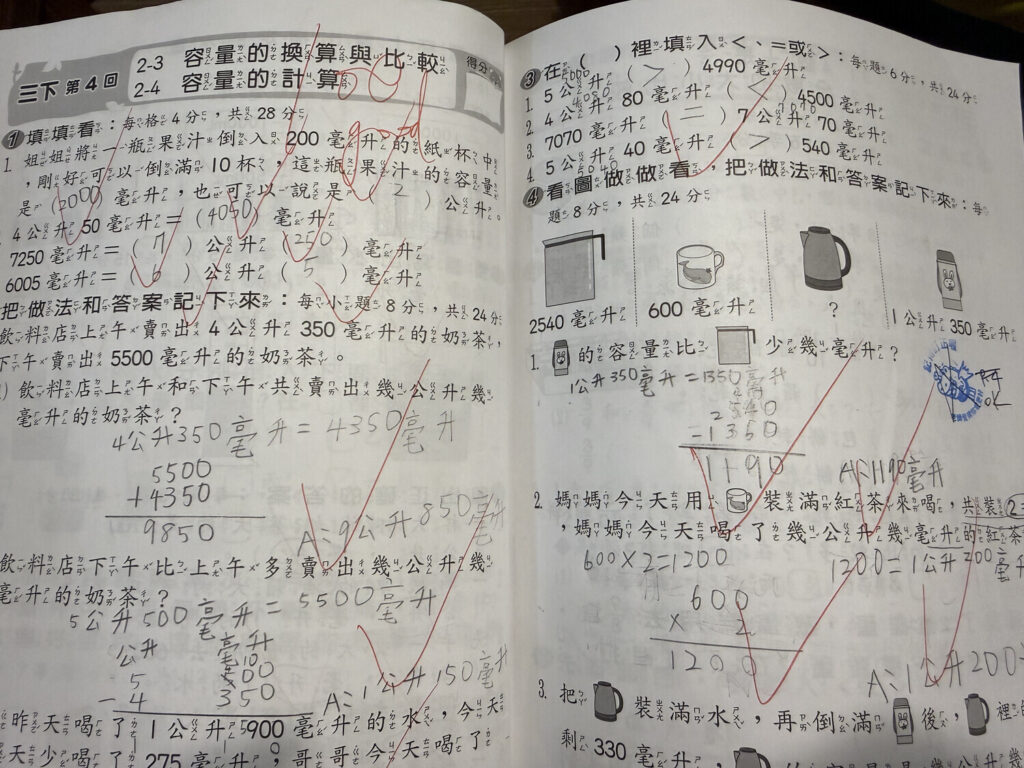 三下 第4回
2-3 容量的換算與比較
2-4 容量的計算
得分
100
good
1 填填看：每格4分，共28分
1. 姐姐將一瓶果汁倒入200毫升的紙杯中
，剛好可以倒滿10杯，這瓶果汁的容量
是(2000)毫升，也可以說是(2)公升。
4公升50毫升=(4050)毫升
7250毫升=(7)公升(250)毫升
6005毫升=(6)公升(5)毫升
把做法和答案記下來：每小題8分，共24分
飲料店上午賣出4公升350毫升的奶茶，
下午賣出5500毫升的奶茶。
)飲料店上午和下午共賣出幾公升幾
毫升的奶茶？
4公升350毫升=4350毫升
5500
+4350
9850
A:9公升850毫升
飲料店下午比上午多賣出幾公升幾
毫升的奶茶？
5公升500毫升=5500毫升
公升 毫升
5
- 4 350
A:1公升150毫升
昨天喝了1公升900毫升的水，今天
天少喝了275毫升，哥哥今天喝了
3 在( )裡填入<、=或>：每題6分，共24分
1. 5公升(>)4990毫升
5000
2. 4公升80毫升(<)4500毫升
3. 7070毫升(=)7公升70毫升
4. 5公升40毫升(>)540毫升
4 看圖做做看，把做法和答案記下來：每
題8分，共24分
2540毫升
600毫升
?
1公升350毫升
1. 的容量比 少幾毫升？
1公升350毫升=1350毫升
2540
-1350
1190
A:1190毫升
OK
2. 媽媽今天用 裝滿紅茶來喝，共裝2
，媽媽今天喝了幾公升幾毫升的紅茶
600×2=1200
1200=1公升200毫升
600
× 2
1200
A:1公升200
3. 把 裝滿水，再倒滿 後， 裡的
剩330毫升，